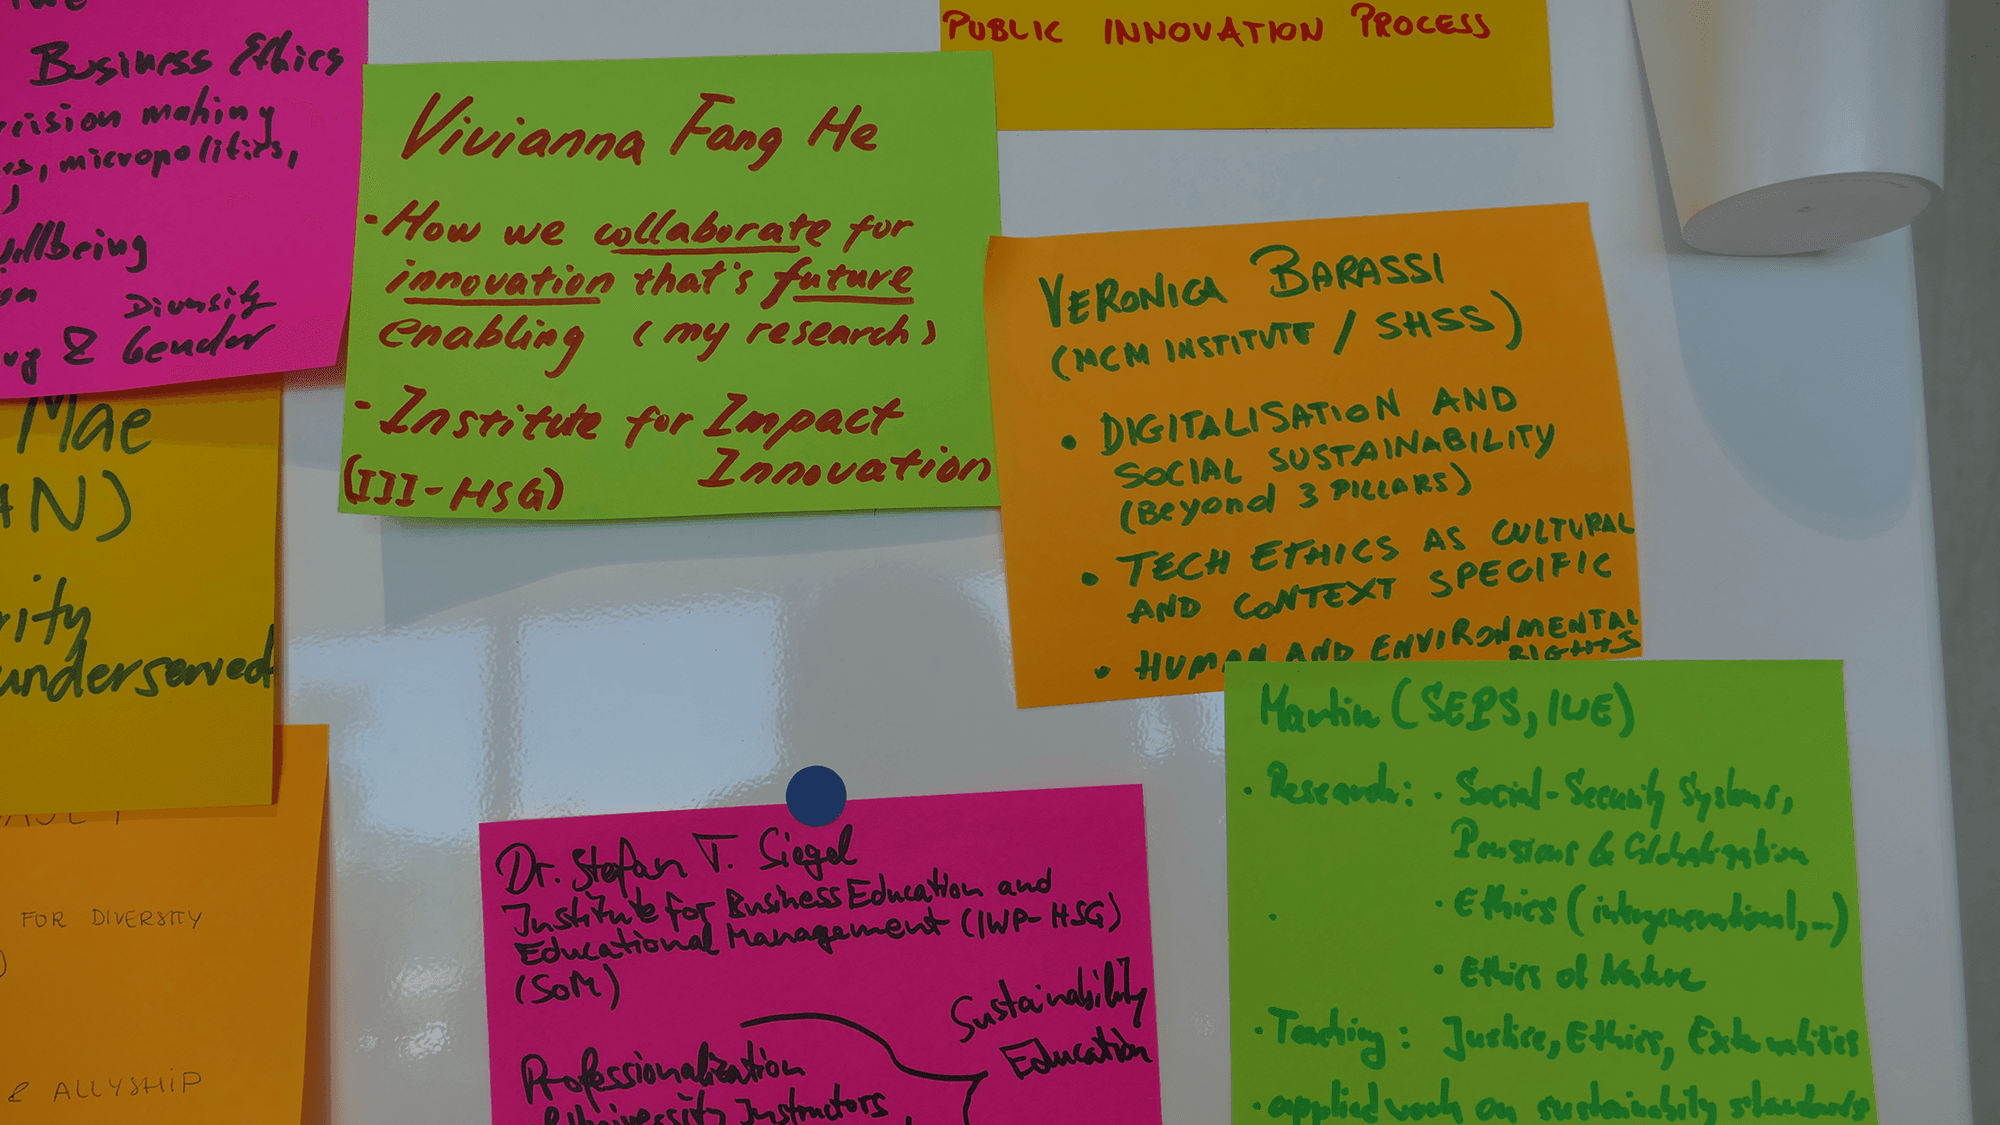 Business Ethics
making
micropolitics,
Diversity
& Gender
Mae
underserved
FOR DIVERSITY
& ALLYSHIP
Vivianna Fang He
- How we collaborate for
innovation that's future
enabling (my research)
- Institute for Impact
Innovation
(III-HSG)
PUBLIC INNOVATION PROCESS
VERONICA BARASSI
(MCM INSTITUTE / SHSS)
• DIGITALISATION AND
SOCIAL SUSTAINABILITY
(Beyond 3 PILLARS)
• TECH ETHICS AS CULTURAL
AND CONTEXT SPECIFIC
• HUMAN AND ENVIRONMENTAL
RIGHTS
Dr. Stefan T. Siegel
Institute for Business Education and
Educational Management (IWP-HSG)
(SoM)
Sustainability
Education
Professionalization
University Instructors
Martin (SEPS, IWE)
• Research: • Social-Security Systems,
Pensions & Globalization
• Ethics (intergenerational,...)
• Ethics of Nature
• Teaching: Justice, Ethics, Externalities
• applied work on sustainability standards